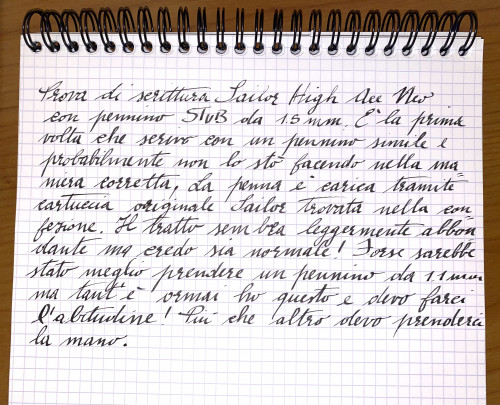 Prova di scrittura Sailor High Ace Neo
con pennino STUB da 1.5 mm. E' la prima
volta che scrivo con un pennino simile e
probabilmente non lo sto facendo nella ma=
niera corretta. La penna è carica tramite
cartuccia originale Sailor trovata nella con=
fezione. Il tratto sembra leggermente abbon
dante ma credo sia normale! Forse sarebbe
stato meglio prendere un pennino da 1.1 mm
ma tant'è ormai ho questo e devo farci
l'abitudine! Più che altro devo prenderci
la mano.